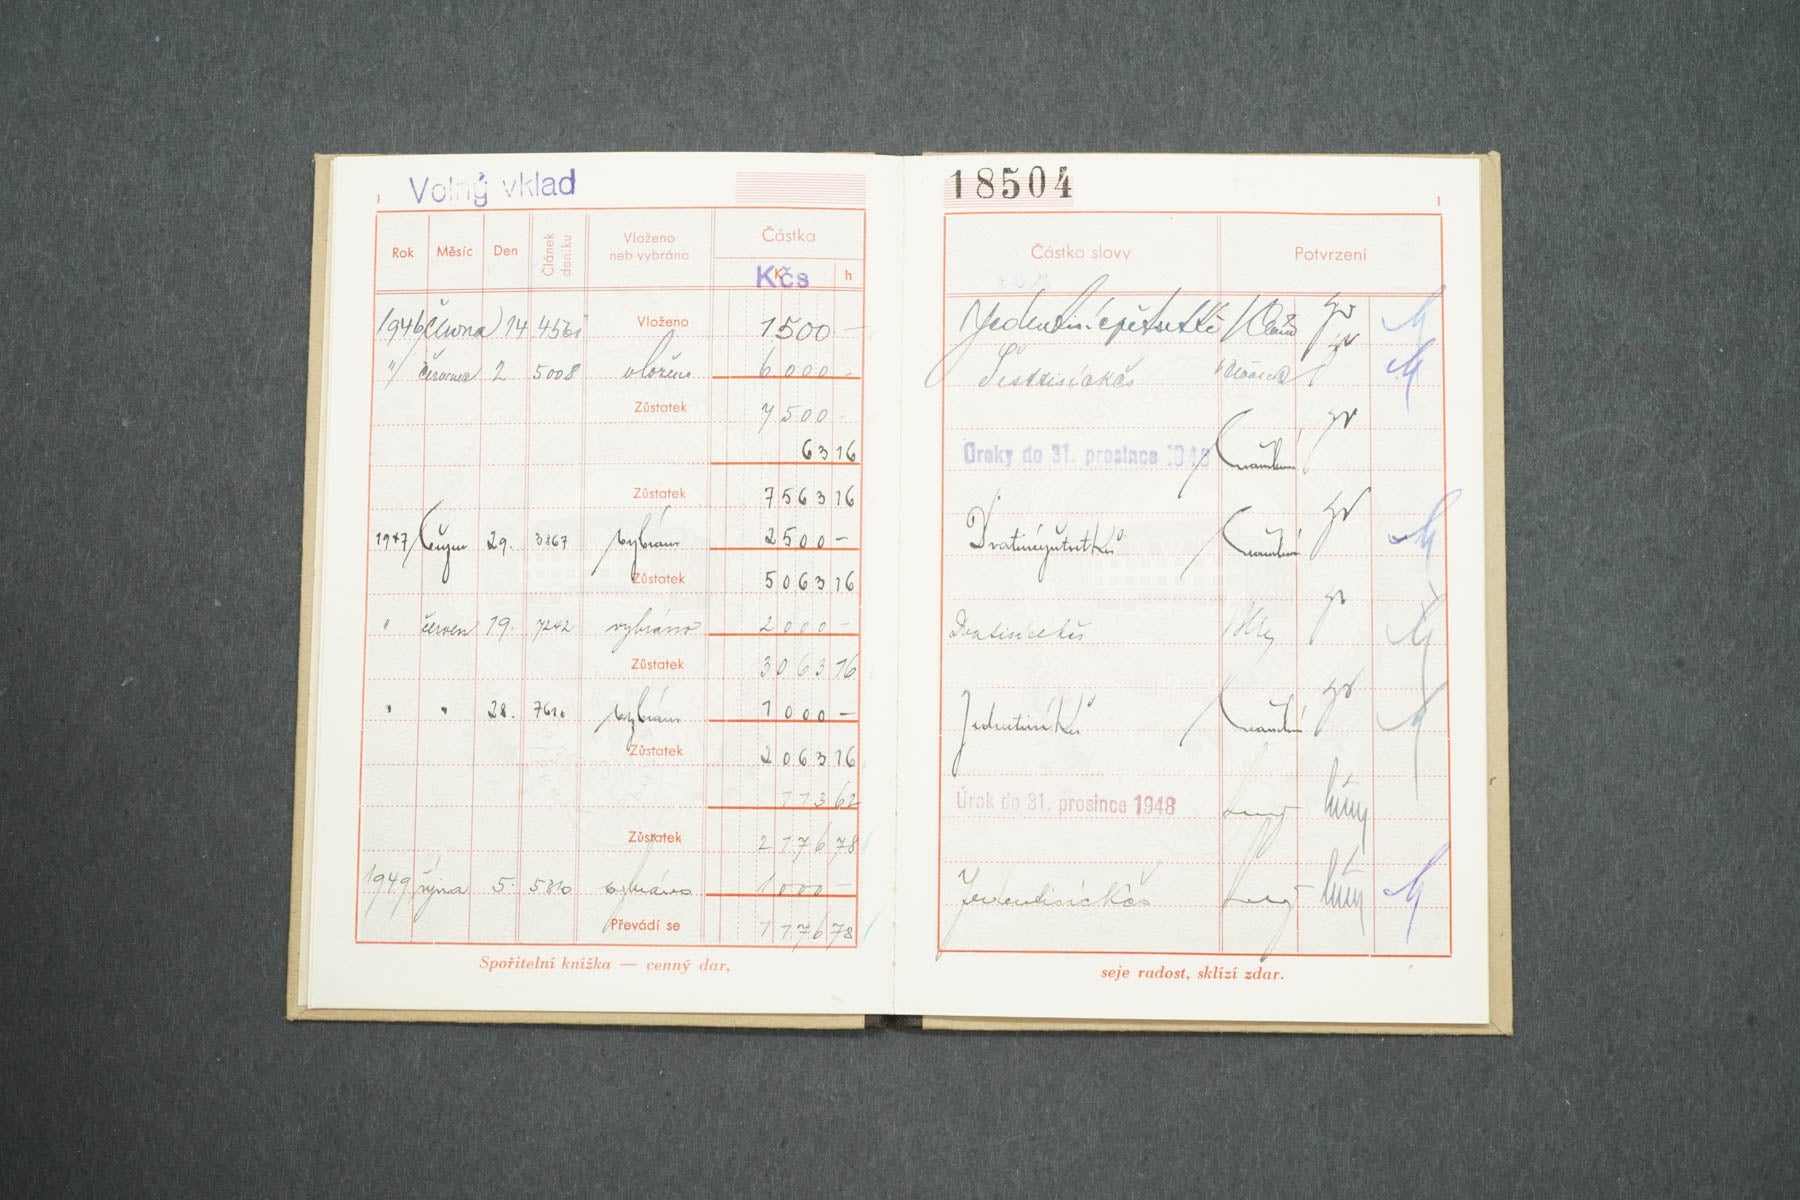 Volný vklad
1
Rok Měsíc Den Článek deníku Vloženo neb vybráno Částka
Kčs h
1946 června 14 4561 Vloženo 1500 —
" července 2 5008 vloženo 6000 -
Zůstatek 7500 -
63 16
Zůstatek 7563 16
1947 29. 3867 vybráno 2500 —
Zůstatek 5063 16
" červen 19. 7242 vybráno 2000 —
Zůstatek 3063 16
" " 28. 7610 vybráno 1000 —
Zůstatek 2063 16
113 62
Zůstatek 2176 78
1949 října 5. 5810 vybráno 1000 —
Převádí se 1176 78
Spořitelní knížka — cenný dar,
18504
1
Částka slovy Potvrzení
Jedentisícpětset Kč
Šesttisíc Kčs
Úroky do 31. prosince 1946
Dvatisíce Kčs
Úrok do 31. prosince 1948
Jedentisíc Kčs
seje radost, sklízí zdar.